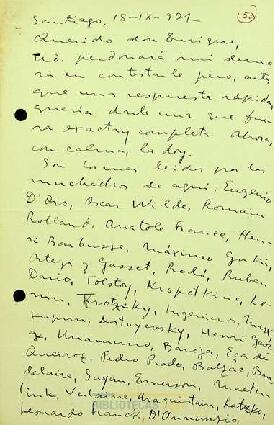 Santiago, 18-IX-921-
(52)
Querido don Enrique,
Ud. perdonará mi demo
ra en contestarle pero, antes
que una respuesta rápida,
quería darle una que fue
ra exacta y completa. Ahora,
con calma, la doy.
Son los leídos por los
muchachos de aquí: Eugenio
D'Ors, Oscar Wilde, Romain
Rolland, Anatole France, Hen
ri Barbusse, Máximo Gorki,
Ortega y Gasset, Rodó, Rubén
Darío, Tolstoy, Kropotkine, Le
nin, Trotzky, Ingenieros,
Dostoyevsky, Henri Geor
ge, Unamuno, Baroja, Eça de
Queiroz, Pedro Prado, Balzac, Bau
delaire, Guyau, Emerson, Maeter
linck, Verlaine,
Leonardo Frank, D'Annunzio,
BIBLIOTECA